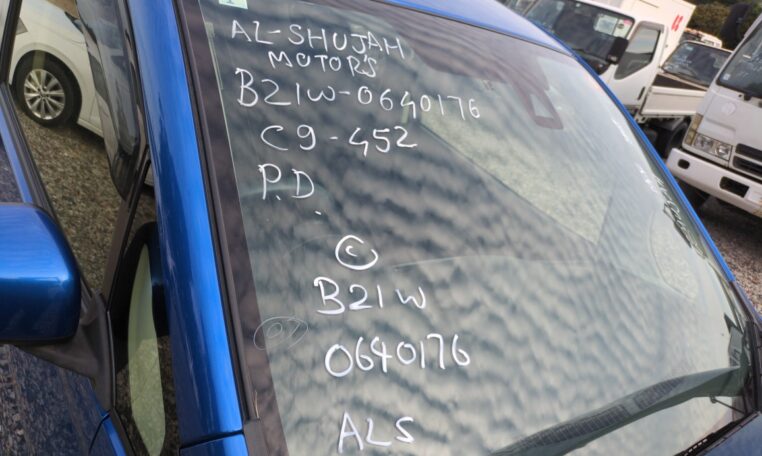 AL-SHUJAH
MOTOR'S
B21W-0640176
C9-452
P.D.
C
B21W
07
0640176
ALS